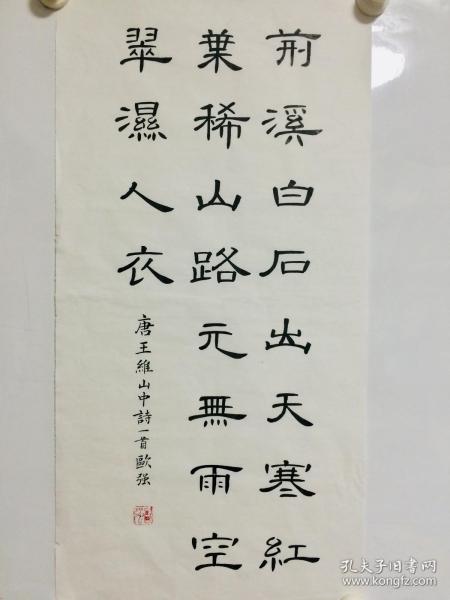 荊溪白石出天寒紅
葉稀山路元無雨空
翠濕人衣
唐王維山中詩一首歐强
孔夫子旧书网
www.kongfz.com